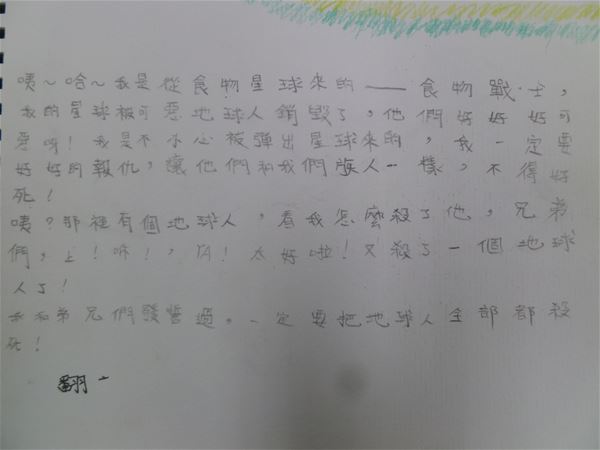 咦～哈～我是從食物星球來的——食物戰士，
我的星球被可惡地球人銷毀了，他們好好好可
惡呀！我是不小心被彈出星球來的，我一定要
好好的報仇，讓他們和我們族人一樣，不得好
死！
咦？那裡有個地球人，看我怎麼殺了他，兄弟
們，上！咻！，YA！太好啦！又殺了一個地球
人了！
我和弟兄們發誓過。一定要把地球人全部都殺
死！
翻